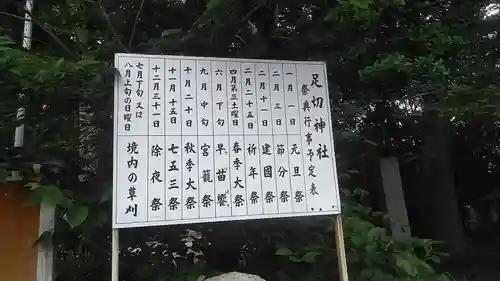 足切神社
祭典行事予定表
一月一日 元旦祭
二月三日 節分祭
二月十一日 建國祭
二月二十五日 祈年祭
四月第三土曜 春季大祭
六月下旬 早苗饗
九月中旬 宮籠祭
十月二十日 秋季大祭
十一月十五日 七五三祭
十二月三十一日 除夜祭
七月下旬又は
八月上旬の日曜日 境内の草刈